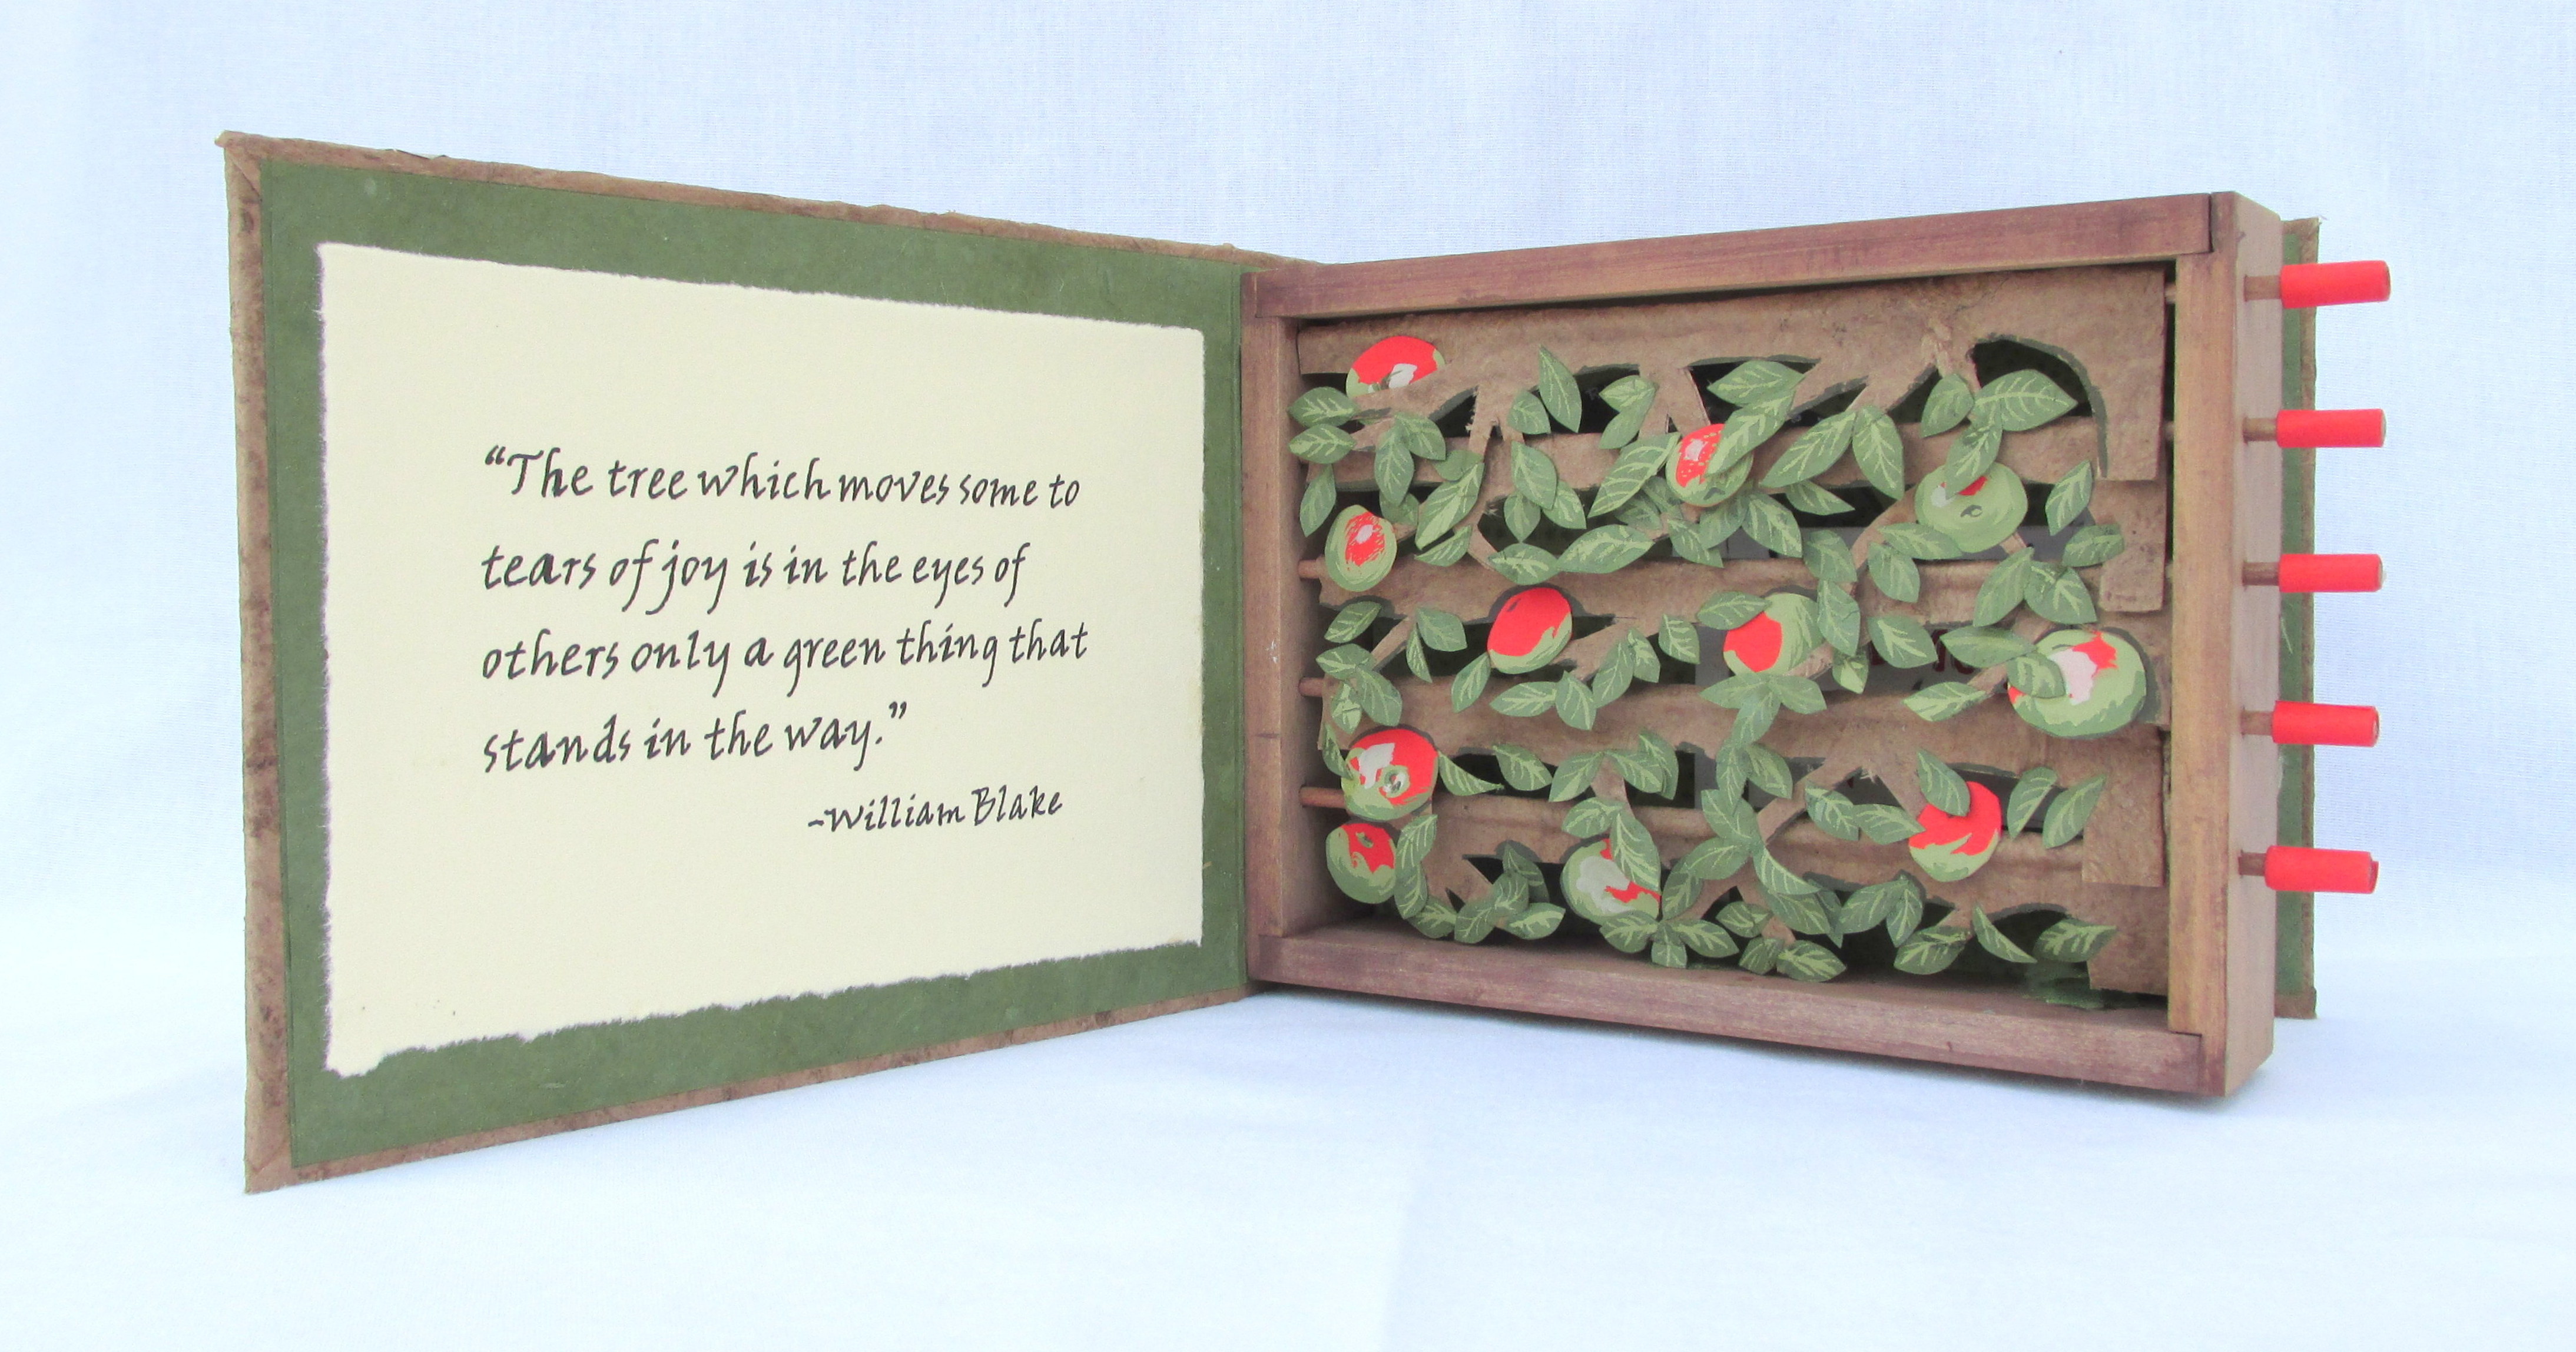 “The tree which moves some to
tears of joy is in the eyes of
others only a green thing that
stands in the way.”
-William Blake